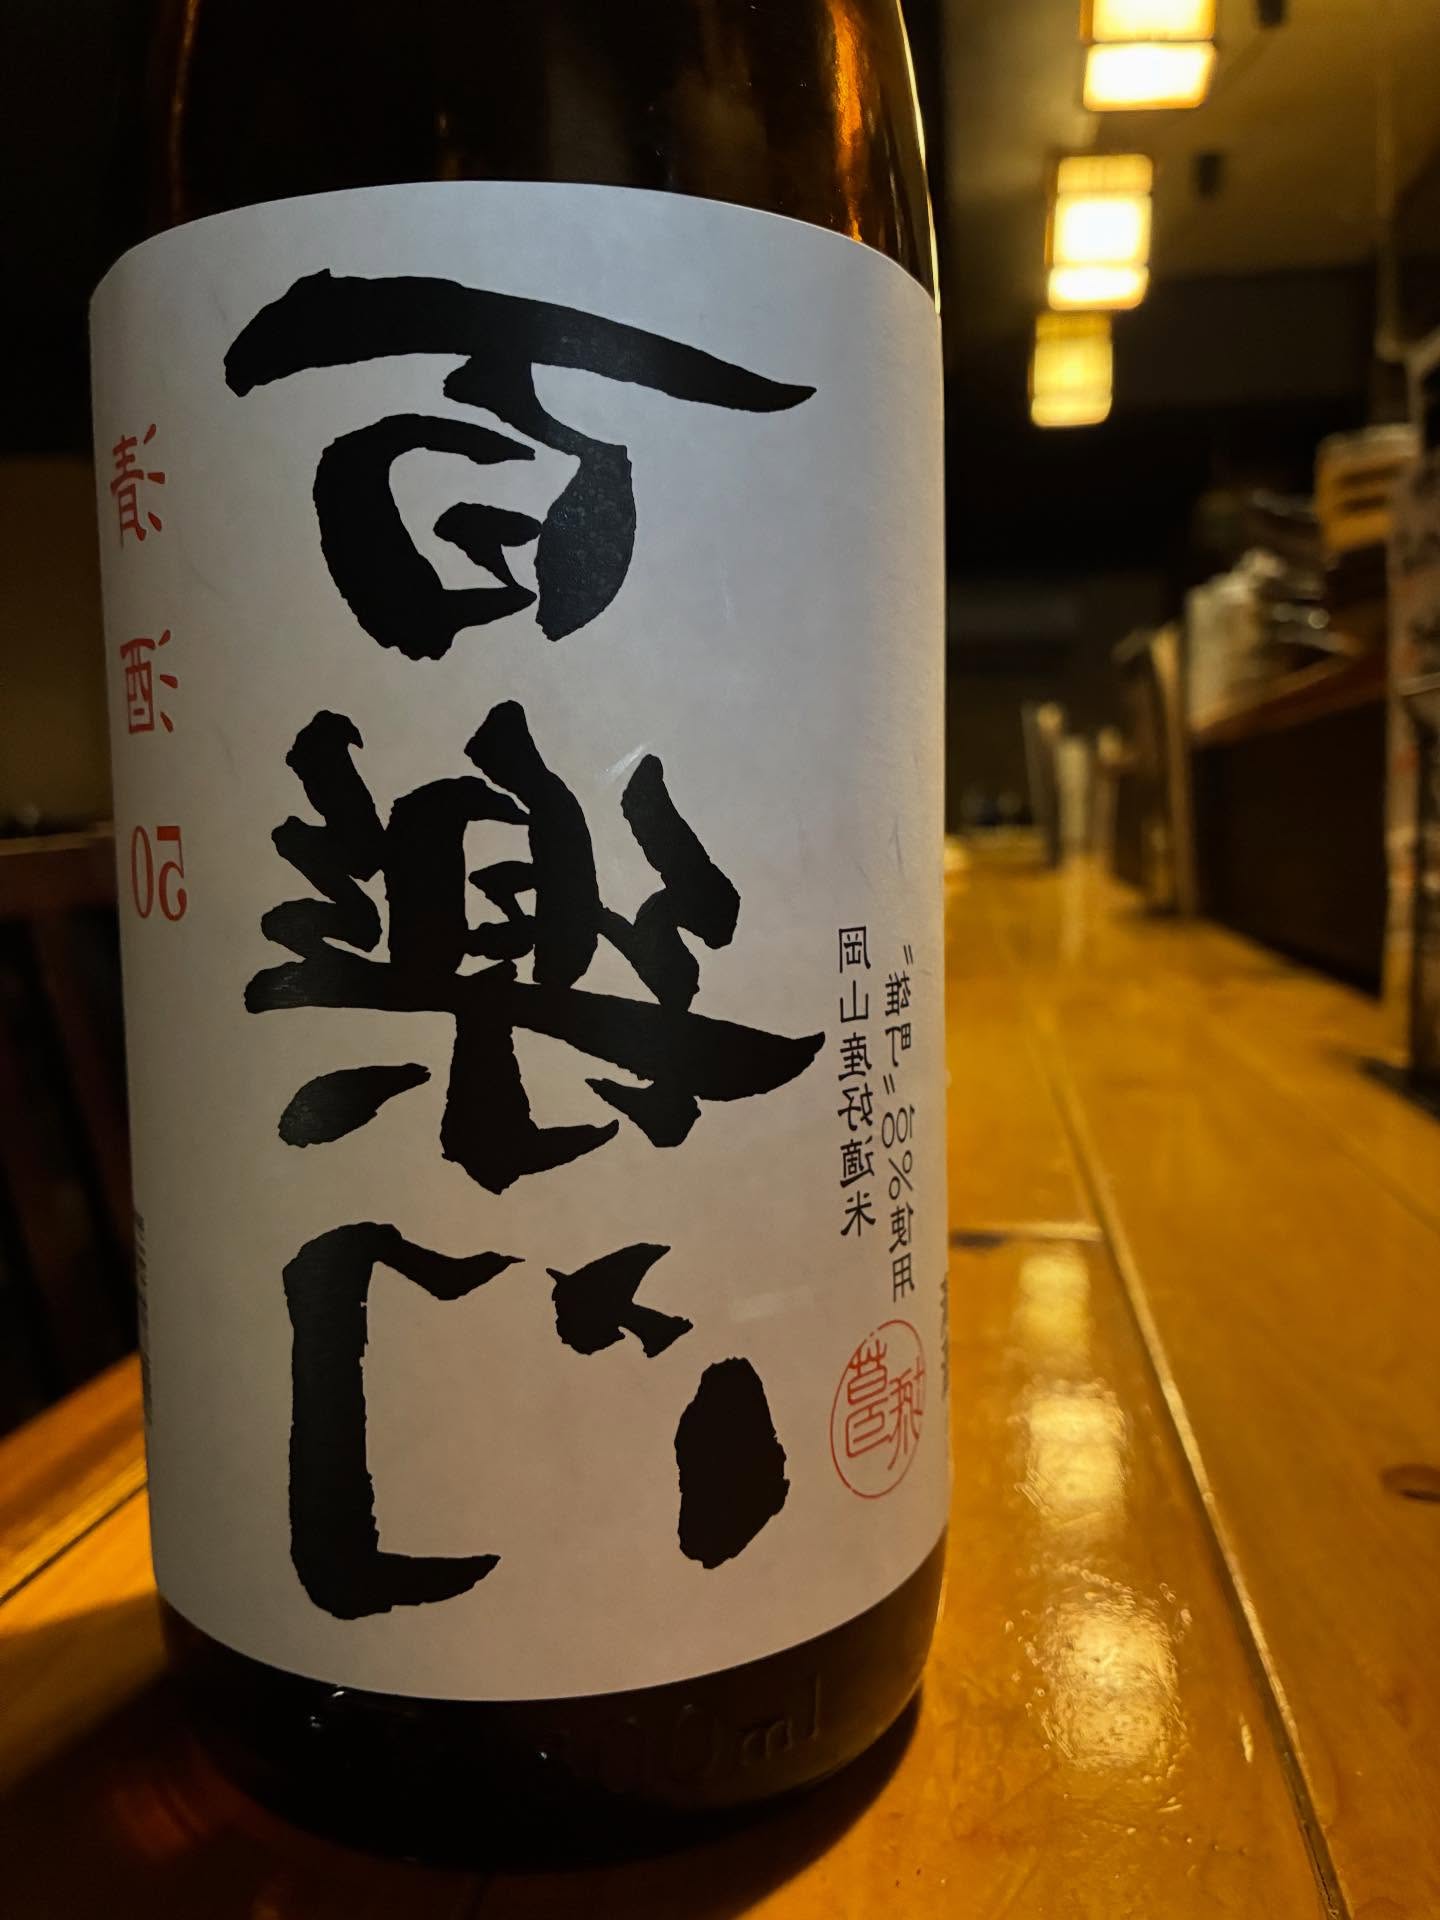 清酒 50
百樂門
岡山産好適米
"雄町" 100%使用